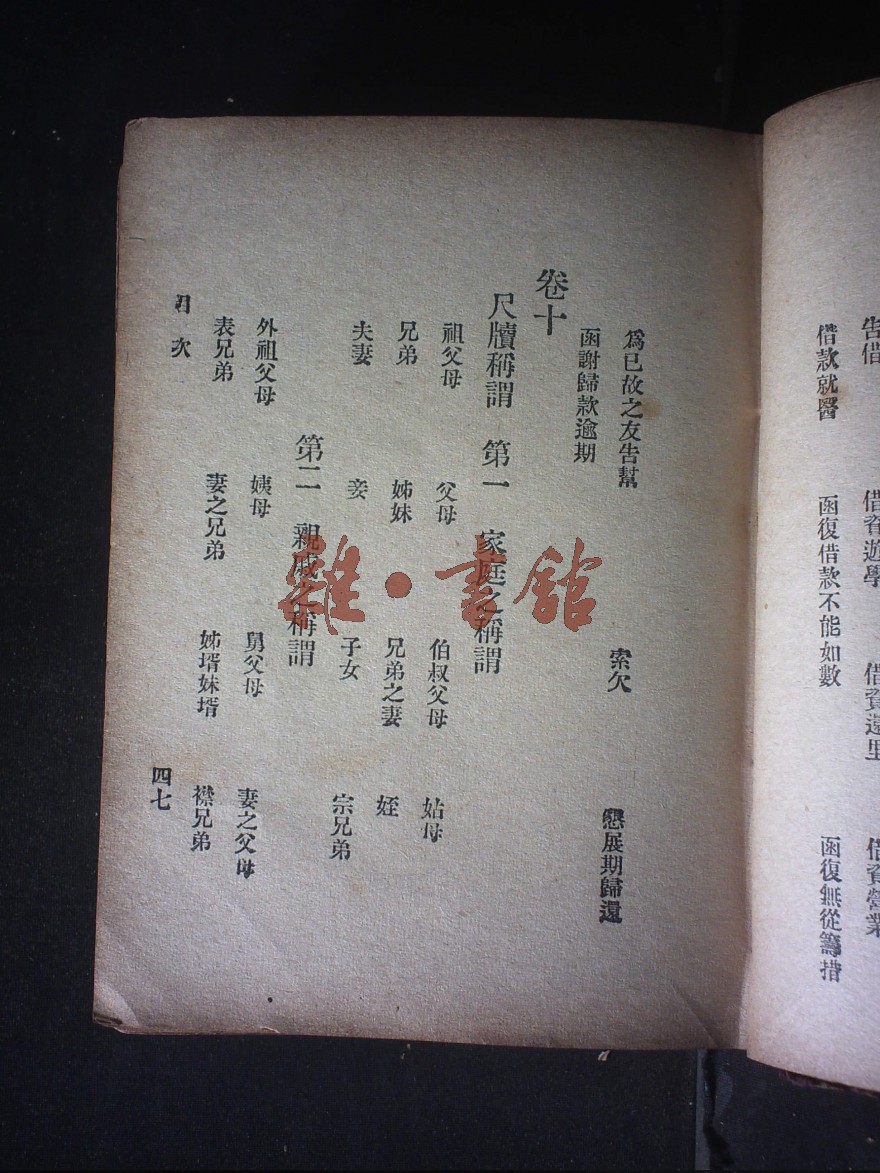 告借 借資遊學 借資還里 借資營業
借款就醫 函復借款不能如數 函復無從籌措
爲已故之友告幫 索欠 懇展期歸還
函謝歸款逾期
卷十
尺牘稱謂 第一 家庭之稱謂
祖父母 父母 伯叔父母 姑母
兄弟 姊妹 兄弟之妻 姪
夫妻 妾 子女 宗兄弟
第二 親戚之稱謂
外祖父母 姨母 舅父母 妻之父母
表兄弟 妻之兄弟 姊壻妹壻 襟兄弟
目次 四七
雜·書館